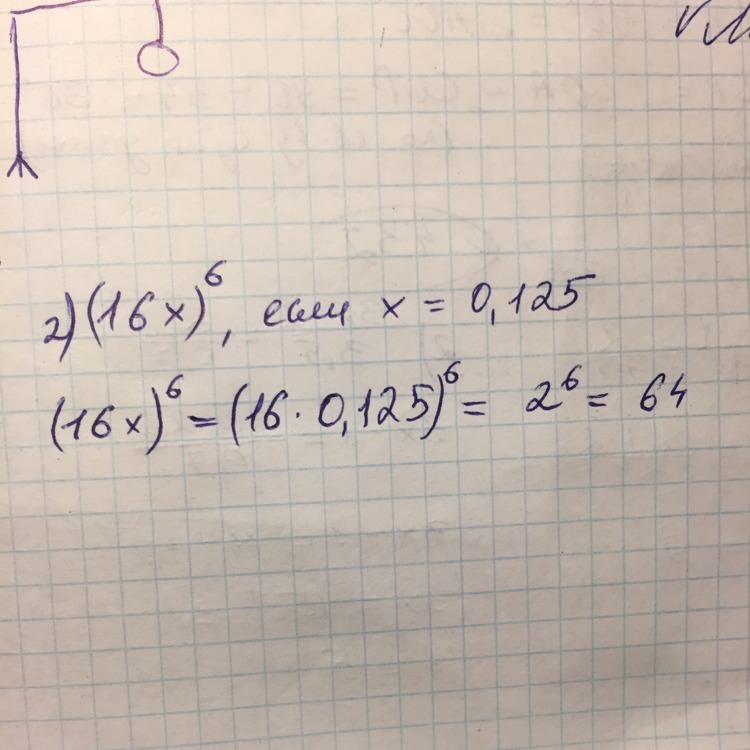 2) (16x)⁶, если x = 0,125
(16x)⁶ = (16 · 0,125)⁶ = 2⁶ = 64